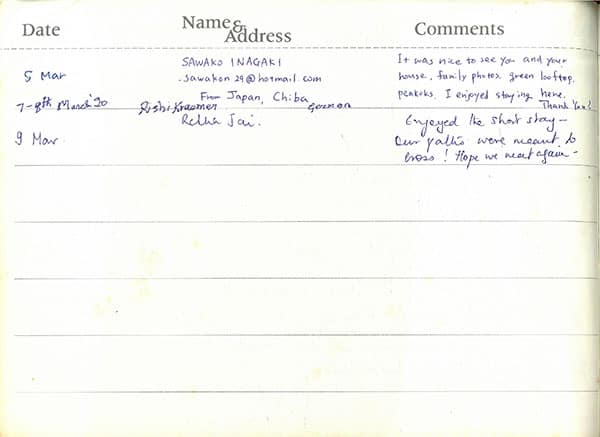 Date Name & Address Comments
5 Mar
SAWAKO INAGAKI
sawakon29@hotmail.com
From Japan, Chiba
It was nice to see you and your
house, family photos, green looftop,
peakoks. I enjoyed staying here.
Thank You!
7-8th March'20 Rishi Kraemer german
9 Mar
Rekha Jai.
Enjoyed the short stay –
Our paths were meant to
cross! Hope we meet again –